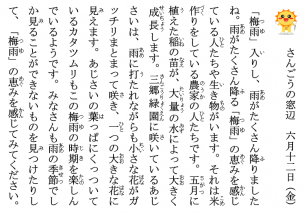 さんごうの窓辺　六月十二日（金）
「梅雨」入りし、雨がたくさん降りました
ね。雨がたくさん降る「梅雨」の恵みを感じ
ている人たちや生き物がいます。それは米
作りをしている農家の人たちです。五月に
植えた稲の苗が、大量の水によって大きく
成長します。三郷緑園に咲いているあじ
さいは、雨に打たれながらも小さな花がガ
ッチリまとまって咲き、一つの大きな花に
見えます。あじさいの葉っぱにくっついて
いるカタツムリもこの梅雨の時期を楽しん
でいるようです。みなさんも雨の季節でし
か見ることができないものを見つけたりし
て、「梅雨」の恵みを感じてみてください。